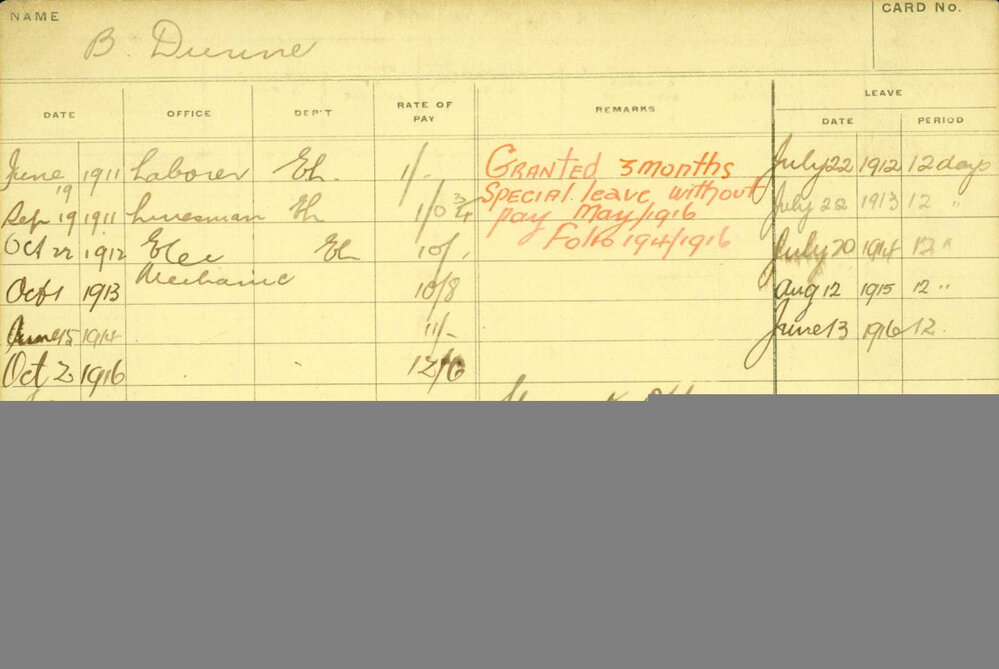 NAME
CARD No.
B. Dunne
DATE OFFICE DEP'T RATE OF PAY REMARKS LEAVE
DATE PERIOD
June 19 1911 Laborer El. 1/-
Sep 19 1911 Linesman El 1/0 3/4
Oct 22 1912 Elec El 10/,
Mechanic
Oct 1 1913 10/8
June 15 1914 11/-
Oct 2 1916 12/6
GRANTED 3 months
SPECIAL leave without
pay May/1916
Folio 194/1916
July 22 1912 12 days
July 22 1913 12 "
July 20 1914 12 "
Aug 12 1915 12 "
June 13 1916 12.